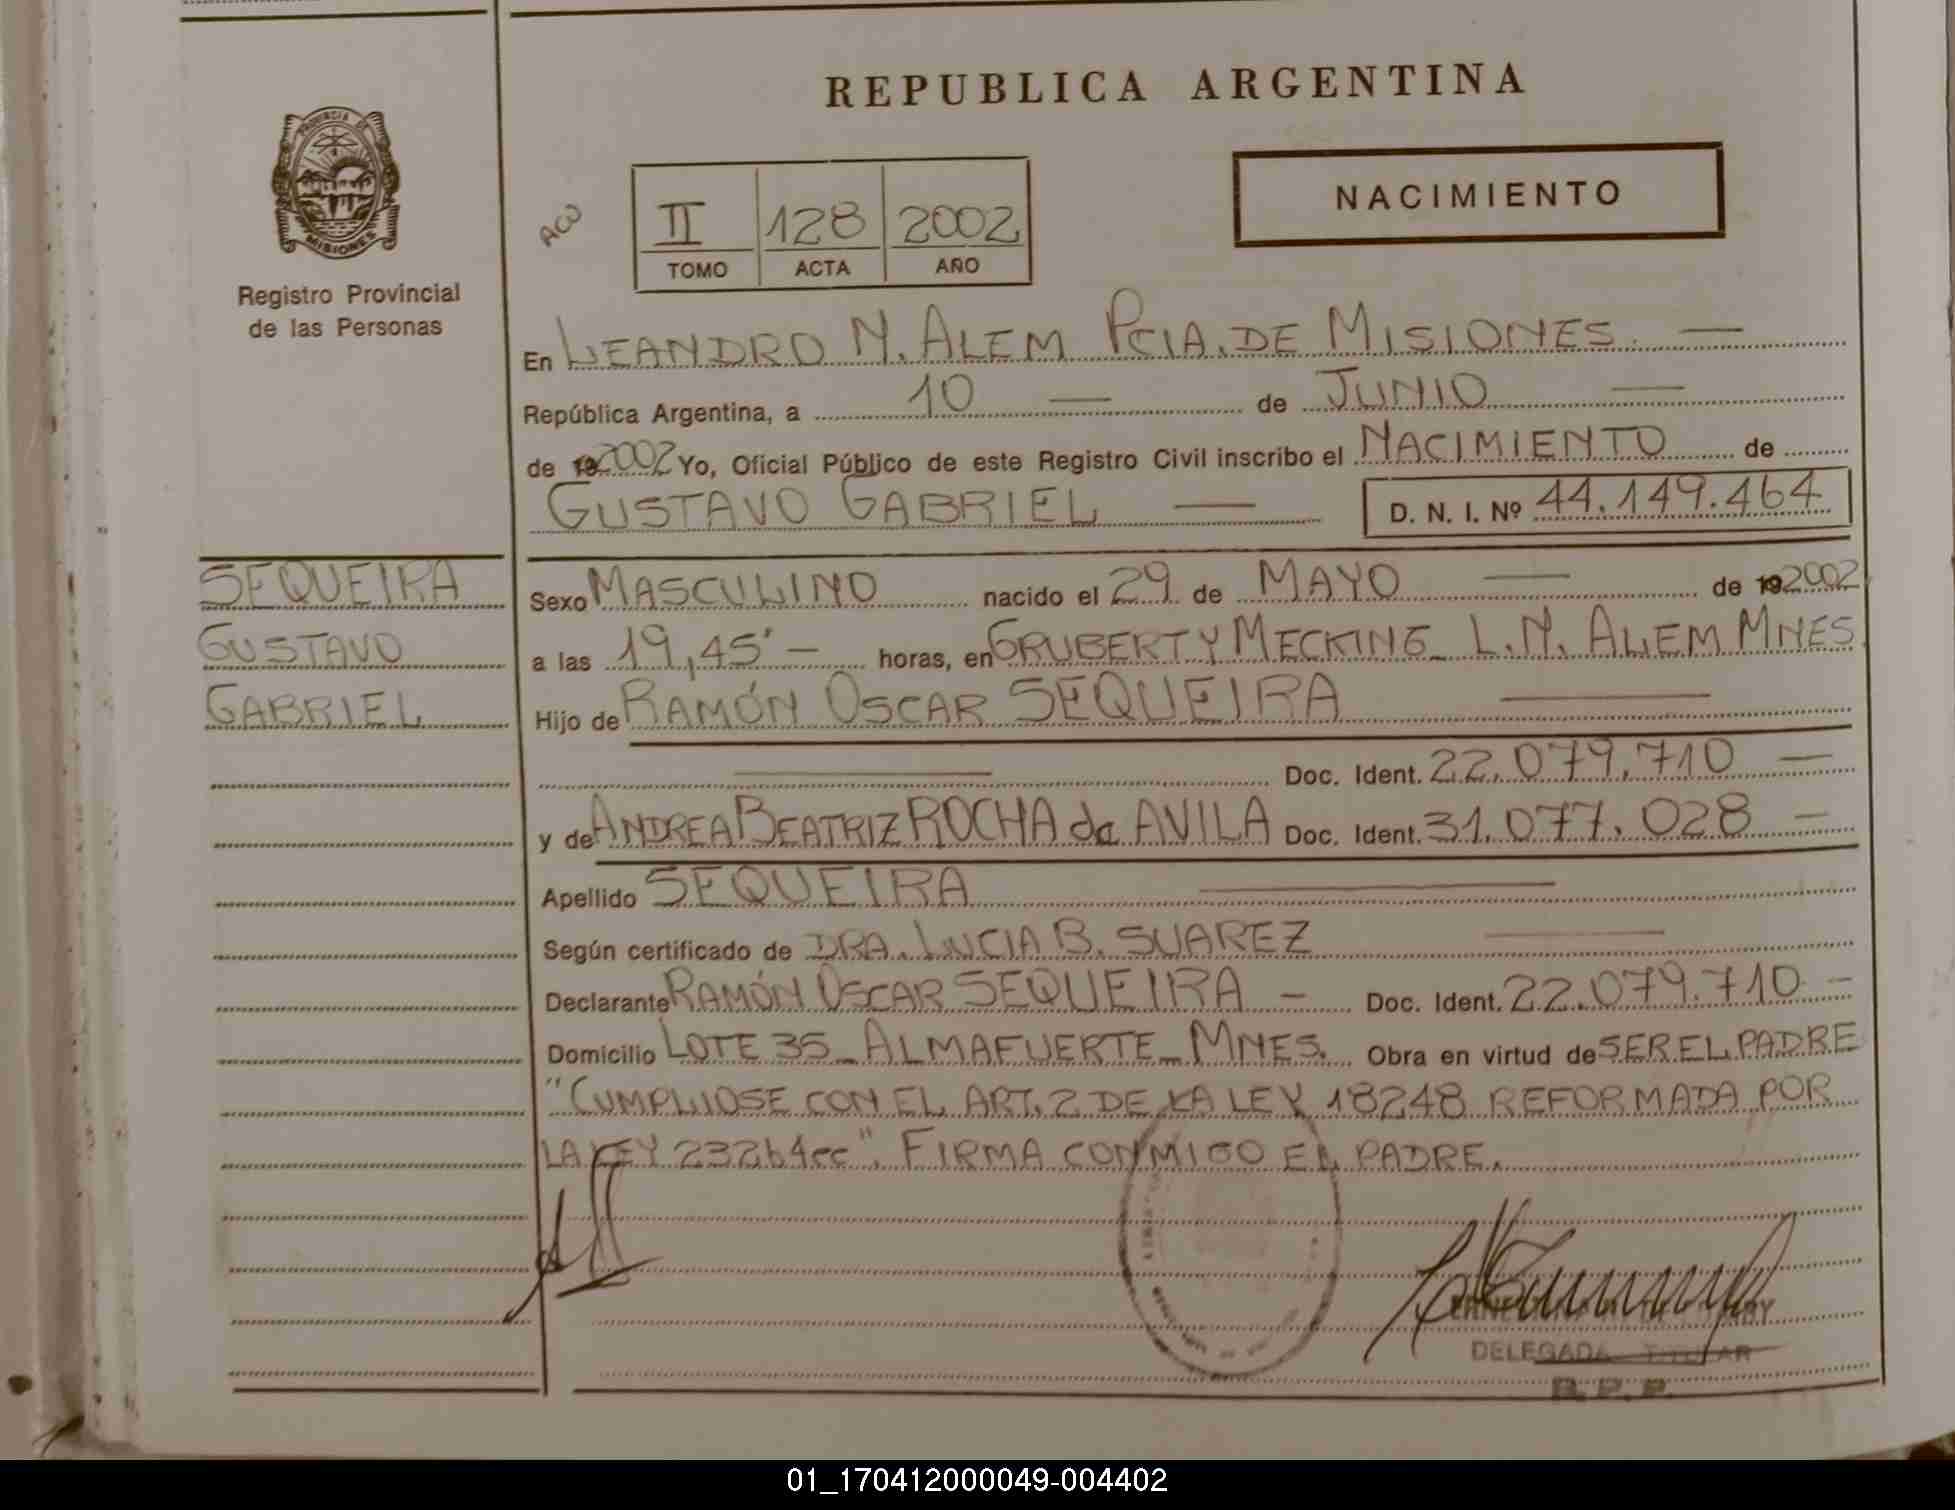 REPUBLICA ARGENTINA
PROVINCIA DE
MISIONES
Registro Provincial
de las Personas
NACIMIENTO
ACU
II 128 2002
TOMO ACTA AÑO
En LEANDRO N. ALEM PCIA. DE MISIONES.
República Argentina, a 10 de JUNIO
de 192002 Yo, Oficial Público de este Registro Civil inscribo el NACIMIENTO de
GUSTAVO GABRIEL D. N. I. Nº 44.149.464
SEQUEIRA
GUSTAVO
GABRIEL
Sexo MASCULINO nacido el 29 de MAYO de 192002
a las 19,45' horas, en GRUBERT Y MECKING_ L.N. ALEM MNES.
Hijo de RAMÓN OSCAR SEQUEIRA
Doc. Ident. 22.079.710
y de ANDREA BEATRIZ ROCHA da AVILA Doc. Ident. 31.077.028
Apellido SEQUEIRA
Según certificado de DRA. LUCIA B. SUAREZ
Declarante RAMÓN OSCAR SEQUEIRA - Doc. Ident. 22.079.710 -
Domicilio LOTE 35_ALMAFUERTE_MNES. Obra en virtud de SER EL PADRE
"CUMPLIOSE CON EL ART. 2 DE LA LEY 18248 REFORMADA POR
LA LEY 23264cc". FIRMA CONMIGO EL PADRE.
DELEGADA TITULAR
R. P. P.
01_170412000049-004402